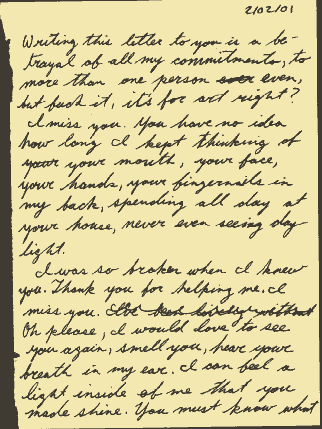 2/02/01
Writing this letter to you is a be-
trayal of all my commitments, to
more than one person even,
but fuck it, it's for art right?
I miss you. You have no idea
how long I kept thinking of
your mouth, your face,
your hands, your fingernails in
my back, spending all day at
your house, never even seeing day
light.
I was so broken when I knew
you. Thank you for helping me. I
miss you.
Oh please, I would love to see
you again, smell you, hear your
breath in my ear. I can feel a
light inside of me that you
made shine. You must know what